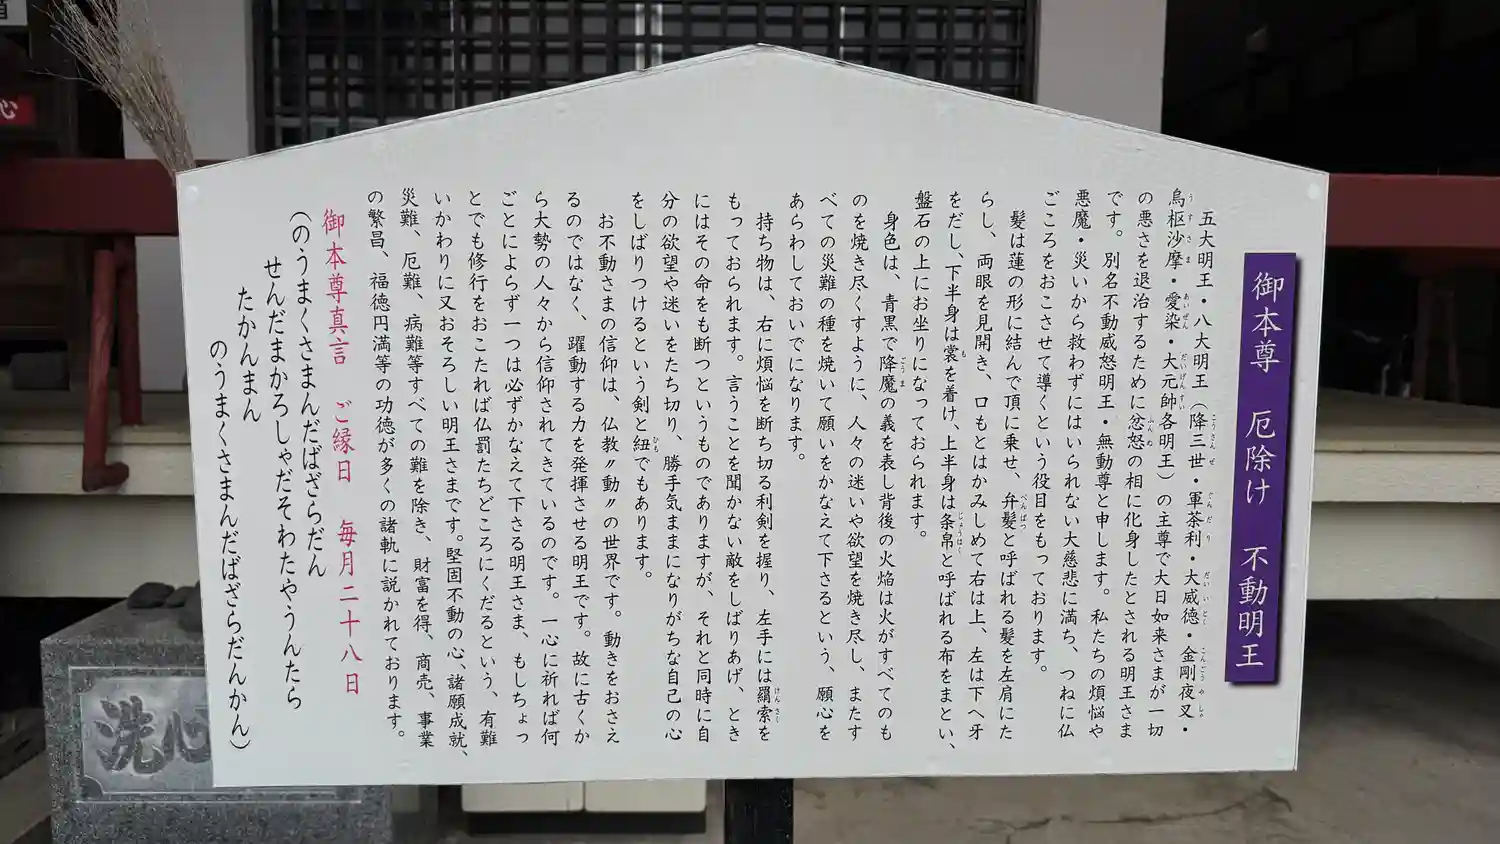 御本尊　厄除け　不動明王
五大明王・八大明王（降三世・軍荼利・大威徳・金剛夜叉・
烏枢沙摩・愛染・大元帥各明王）の主尊で大日如来さまが一切
の悪さを退治するために忿怒の相に化身したとされる明王さま
です。別名不動威怒明王・無動尊と申します。私たちの煩悩や
悪魔・災いから救わずにはいられない大慈悲に満ち、つねに仏
ごころをおこさせて導くという役目をもっております。
髪は蓮の形に結んで頂に乗せ、弁髪と呼ばれる髪を左肩にた
らし、両眼を見開き、口もとはかみしめて右は上、左は下へ牙
をだし、下半身は裳を着け、上半身は条帛と呼ばれる布をまとい、
盤石の上にお坐りになっておられます。
身色は、青黒で降魔の義を表し背後の火焔は火がすべてのも
のを焼き尽くすように、人々の迷いや欲望を焼き尽し、またす
べての災難の種を焼いて願いをかなえて下さるという、願心を
あらわしておいでになります。
持ち物は、右に煩悩を断ち切る利剣を握り、左手には羂索を
もっておられます。言うことを聞かない敵をしばりあげ、とき
にはその命をも断つというものでありますが、それと同時に自
分の欲望や迷いをたち切り、勝手気ままになりがちな自己の心
をしばりつけるという剣と紐でもあります。
お不動さまの信仰は、仏教〃動〃の世界です。動きをおさえ
るのではなく、躍動する力を発揮させる明王です。故に古くか
ら大勢の人々から信仰されてきているのです。一心に祈れば何
ごとによらず一つは必ずかなえて下さる明王さま、もしちょっ
とでも修行をおこたれば仏罰たちどころにくだるという、有難
いかわりに又おそろしい明王さまです。堅固不動の心、諸願成就、
災難、厄難、病難等すべての難を除き、財富を得、商売、事業
の繁昌、福徳円満等の功徳が多くの諸軌に説かれております。
御本尊真言　ご縁日　毎月二十八日
（のうまくさまんだばざらだん
せんだまかろしゃだそわたやうんたら
たかんまん
のうまくさまんだばざらだんかん）
洗心
心